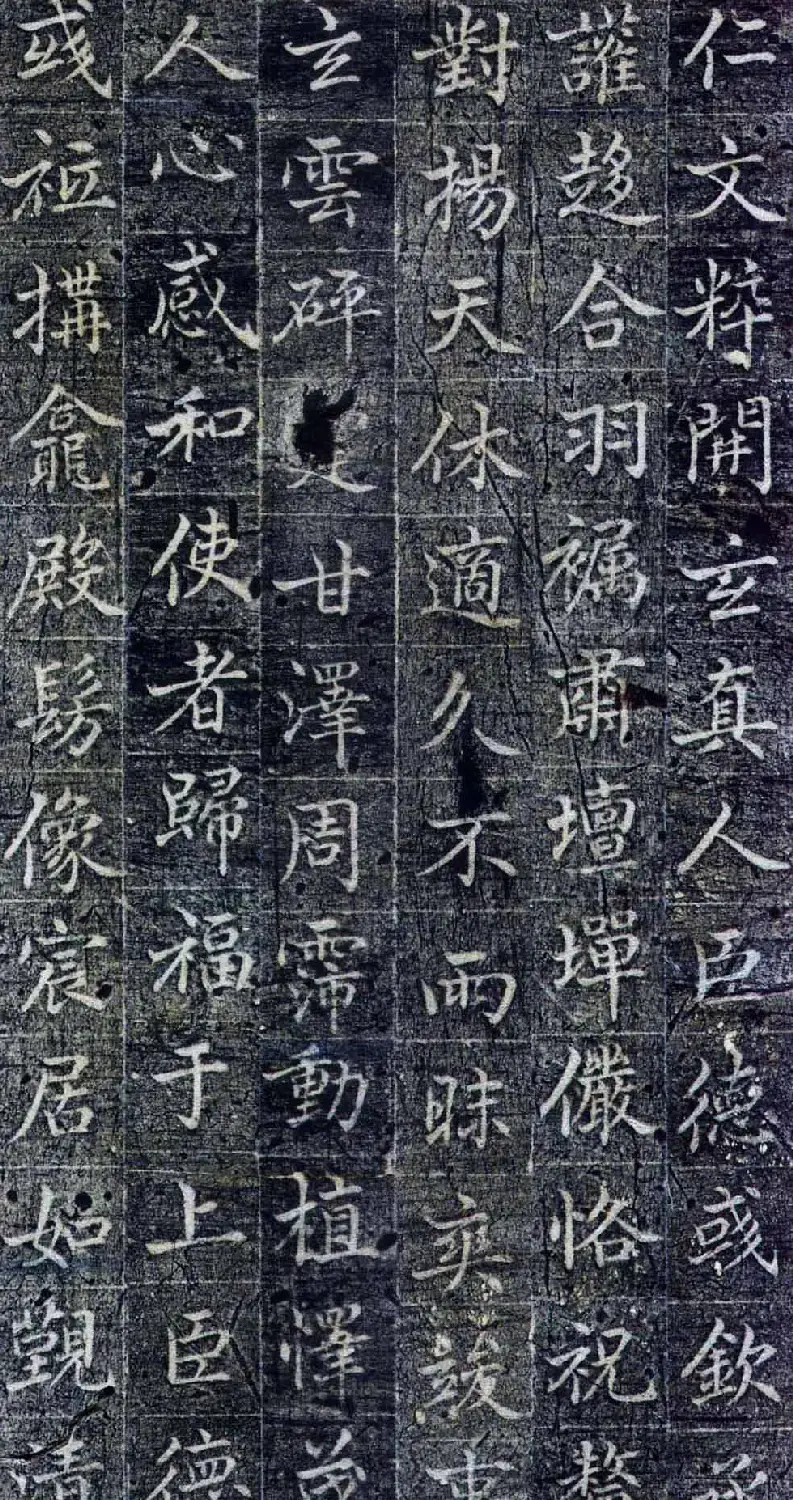 仁文粹開玄真人臣德彧欽
趍合羽肅壇墠儼恪祝釐
對揚天休適久不雨昧爽竣事
玄雲砰甘澤周霈動植懌
人心感和使者歸福于上臣德
彧祗構龕殿髣像宸居如覲清